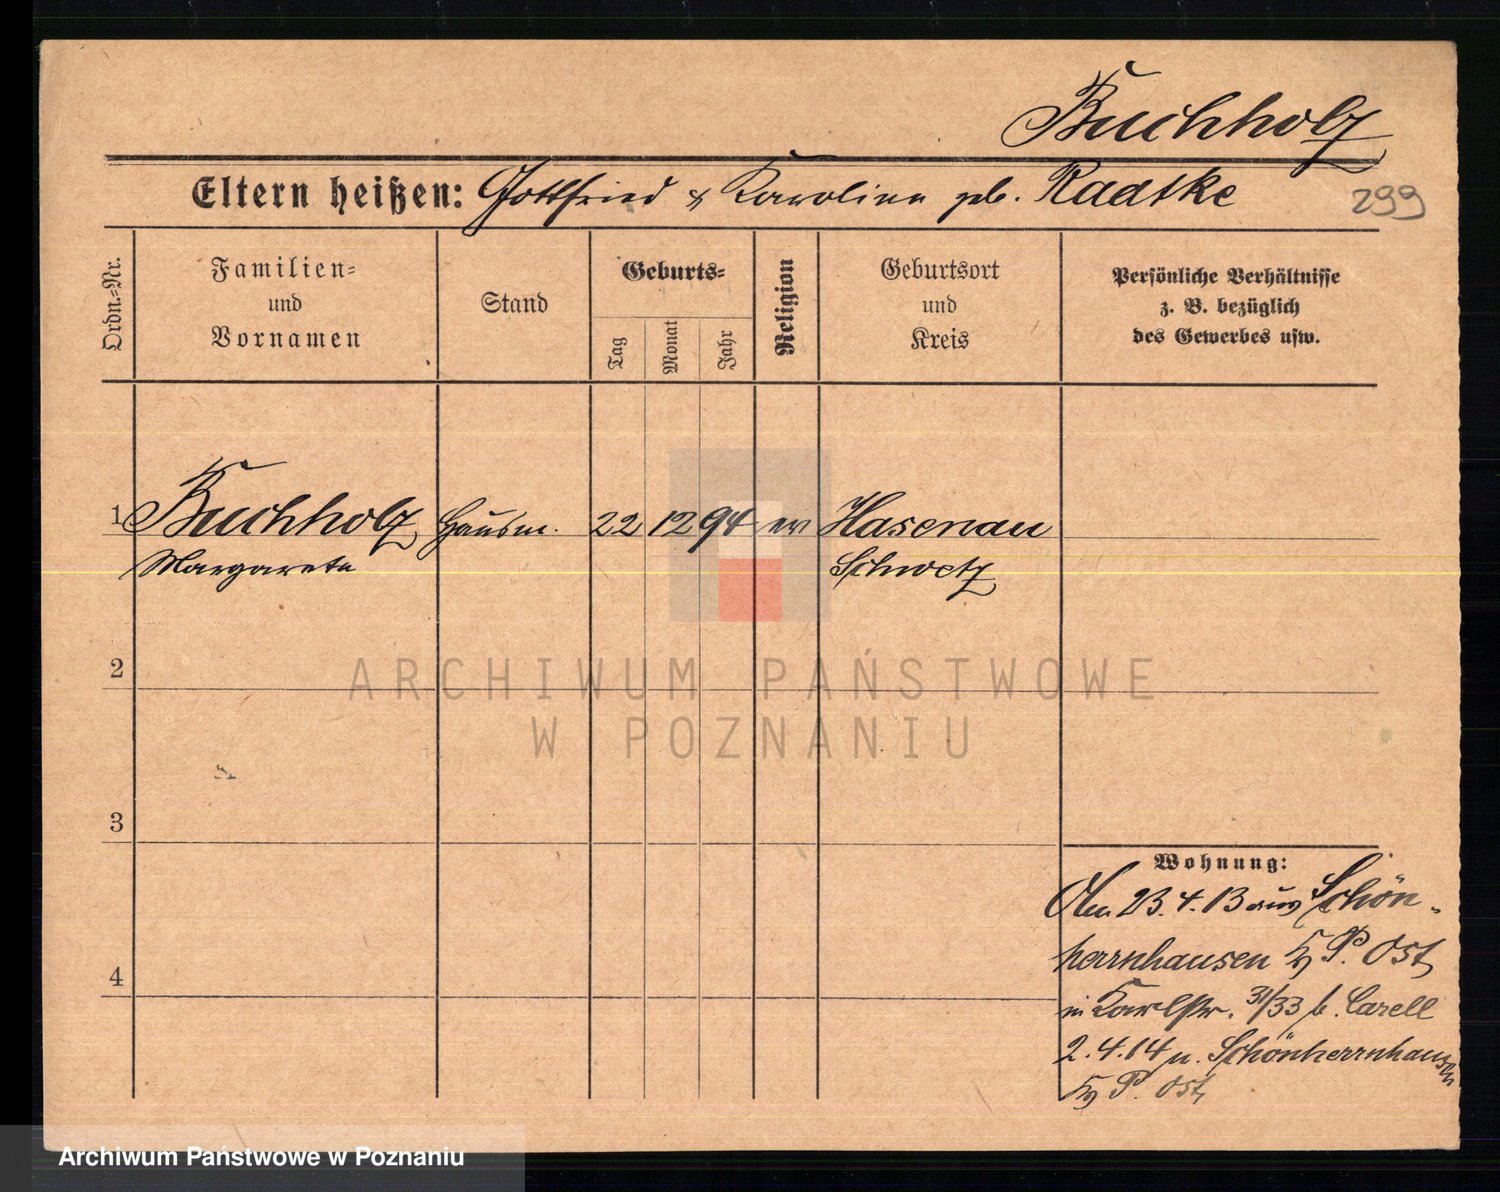 Buchholz
Eltern heißen: Gottfried & Karoline geb. Raatzke
299
Ordn.-Nr.
Familien-
und
Vornamen
Stand
Geburts-
Tag
Monat
Jahr
Religion
Geburtsort
und
Kreis
Persönliche Verhältnisse
z. B. bezüglich
des Gewerbes usw.
1 Buchholz Hausm. 22 12 94 ev Hasenau
Margarete Schwetz
ARCHIWUM PAŃSTWOWE
W POZNANIU
2
3
4
Wohnung:
Am 23.4.13 aus Schön-
herrnhausen Kr P. Ost
in Karlstr. 31/33 b. Carell
2.4.14 n. Schönherrnhausen
Kr P. Ost
Archiwum Państwowe w Poznaniu